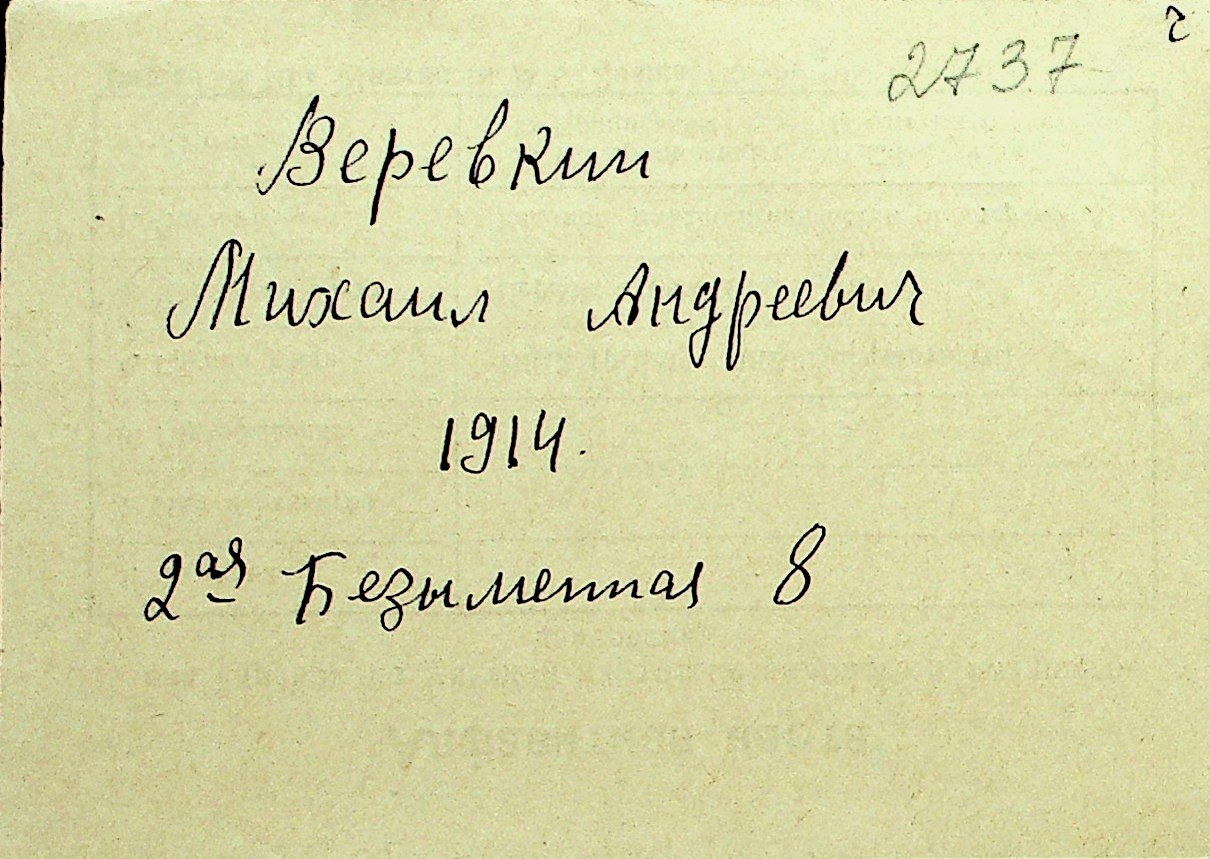 2737
Веревкин
Михаил Андреевич
1914.
2ая Безыменная 8